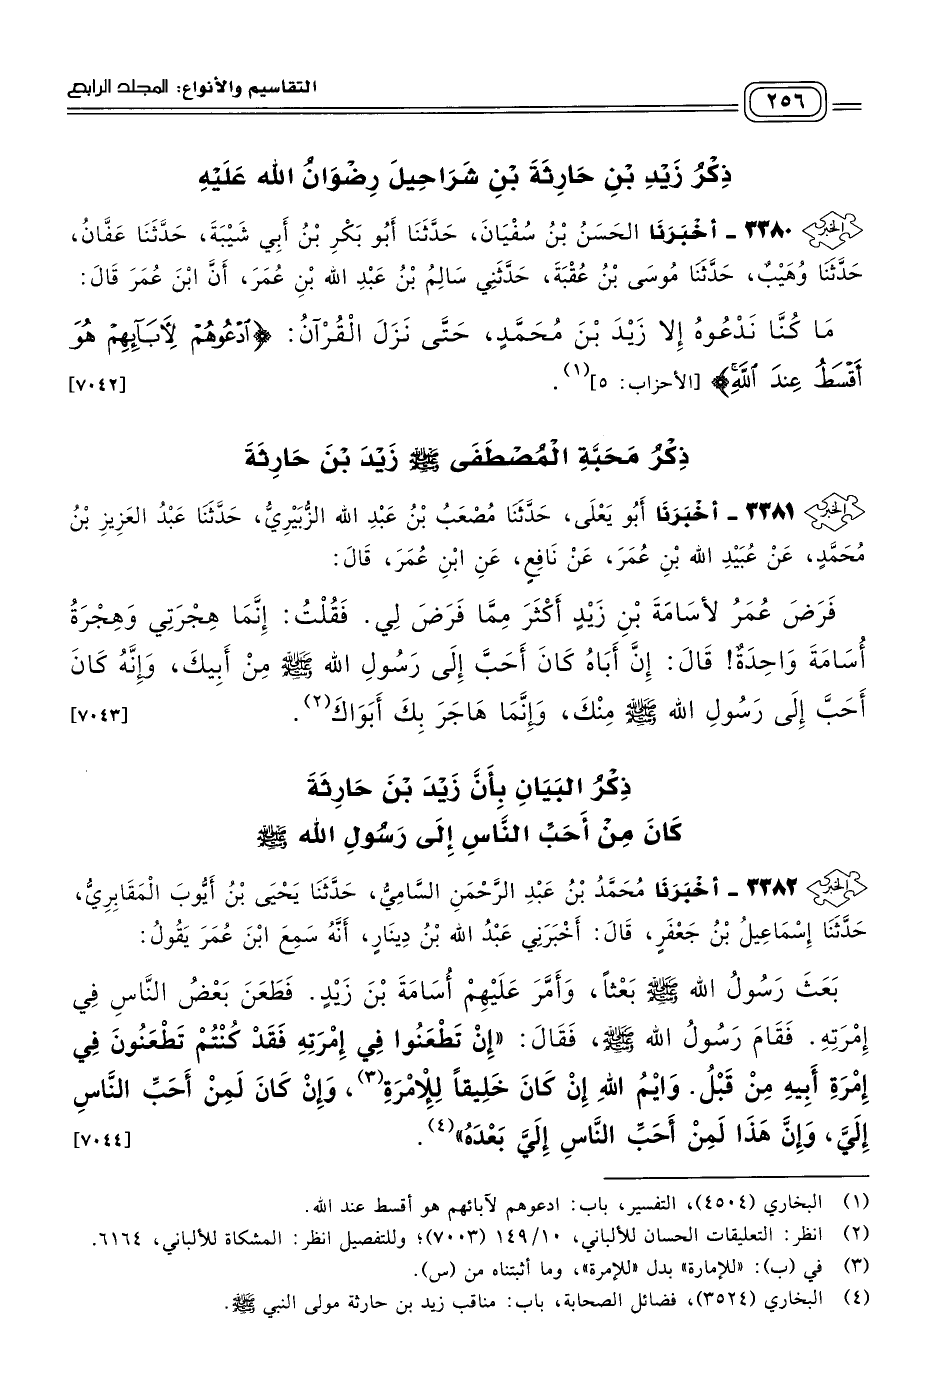 التقاسيم والأنواع: المجلد الرابع
٢٥٦
ذِكْرُ زَيْدِ بْنِ حَارِثَةَ بْنِ شَرَاحِيلَ رِضْوَانُ الله عَلَيْهِ
الخبر ٣٣٨٠ - أخْبَرَنَا الحَسَنُ بْنُ سُفْيَانَ، حَدَّثَنَا أَبُو بَكْرِ بْنُ أَبِي شَيْبَةَ، حَدَّثَنَا عَفَّانُ،
حَدَّثَنَا وُهَيْبٌ، حَدَّثَنَا مُوسَى بْنُ عُقْبَةَ، حَدَّثَنِي سَالِمُ بْنُ عَبْدِ الله بْنِ عُمَرَ، أَنَّ ابْنَ عُمَرَ قَالَ:
مَا كُنَّا نَدْعُوهُ إِلا زَيْدَ بْنَ مُحَمَّدٍ، حَتَّى نَزَلَ الْقُرْآنُ: ﴿ٱدْعُوهُمْ لِأٓبَآئِهِمْ هُوَ
أَقْسَطُ عِندَ ٱللَّهِۚ﴾ [الأحزاب: ٥](١). [٧٠٤٢]
ذِكْرُ مَحَبَّةِ الْمُصْطَفَى ﷺ زَيْدَ بْنَ حَارِثَةَ
الخبر ٣٣٨١ - أخْبَرَنَا أَبُو يَعْلَى، حَدَّثَنَا مُصْعَبُ بْنُ عَبْدِ الله الزُّبَيْرِيُّ، حَدَّثَنَا عَبْدُ العَزِيزِ بْنُ
مُحَمَّدٍ، عَنْ عُبَيْدِ الله بْنِ عُمَرَ، عَنْ نَافِعٍ، عَنِ ابْنِ عُمَرَ، قَالَ:
فَرَضَ عُمَرُ لأسَامَةَ بْنِ زَيْدٍ أَكْثَرَ مِمَّا فَرَضَ لِي. فَقُلْتُ: إِنَّمَا هِجْرَتِي وَهِجْرَةُ
أُسَامَةَ وَاحِدَةٌ! قَالَ: إِنَّ أَبَاهُ كَانَ أَحَبَّ إِلَى رَسُولِ الله ﷺ مِنْ أَبِيكَ، وَإِنَّهُ كَانَ
أَحَبَّ إِلَى رَسُولِ الله ﷺ مِنْكَ، وَإِنَّمَا هَاجَرَ بِكَ أَبَوَاكَ(٢). [٧٠٤٣]
ذِكْرُ البَيَانِ بِأَنَّ زَيْدَ بْنَ حَارِثَةَ
كَانَ مِنْ أَحَبِّ النَّاسِ إِلَى رَسُولِ الله ﷺ
الخبر ٣٣٨٢ - أخْبَرَنَا مُحَمَّدُ بْنُ عَبْدِ الرَّحْمَنِ السَّامِيُّ، حَدَّثَنَا يَحْيَى بْنُ أَيُّوبَ الْمَقَابِرِيُّ،
حَدَّثَنَا إِسْمَاعِيلُ بْنُ جَعْفَرٍ، قَالَ: أَخْبَرَنِي عَبْدُ الله بْنُ دِينَارٍ، أَنَّهُ سَمِعَ ابْنَ عُمَرَ يَقُولُ:
بَعَثَ رَسُولُ الله ﷺ بَعْثاً، وَأَمَّرَ عَلَيْهِمْ أُسَامَةَ بْنَ زَيْدٍ. فَطَعَنَ بَعْضُ النَّاسِ فِي
إِمْرَتِهِ. فَقَامَ رَسُولُ الله ﷺ، فَقَالَ: «إِنْ تَطْعَنُوا فِي إِمْرَتِهِ فَقَدْ كُنْتُمْ تَطْعَنُونَ فِي
إِمْرَةِ أَبِيهِ مِنْ قَبْلُ. وَايْمُ اللهِ إِنْ كَانَ خَلِيقاً لِلْإِمْرَةِ(٣)، وَإِنْ كَانَ لَمِنْ أَحَبِّ النَّاسِ
إِلَيَّ، وَإِنَّ هَذَا لَمِنْ أَحَبِّ النَّاسِ إِلَيَّ بَعْدَهُ»(٤). [٧٠٤٤]
(١) البخاري (٤٥٠٤)، التفسير، باب: ادعوهم لآبائهم هو أقسط عند الله.
(٢) انظر: التعليقات الحسان للألباني، ١٤٩/١٠ (٧٠٠٣)؛ وللتفصيل انظر: المشكاة للألباني، ٦١٦٤.
(٣) في (ب): «للإمارة» بدل «للإمرة»، وما أثبتناه من (س).
(٤) البخاري (٣٥٢٤)، فضائل الصحابة، باب: مناقب زيد بن حارثة مولى النبي ﷺ.